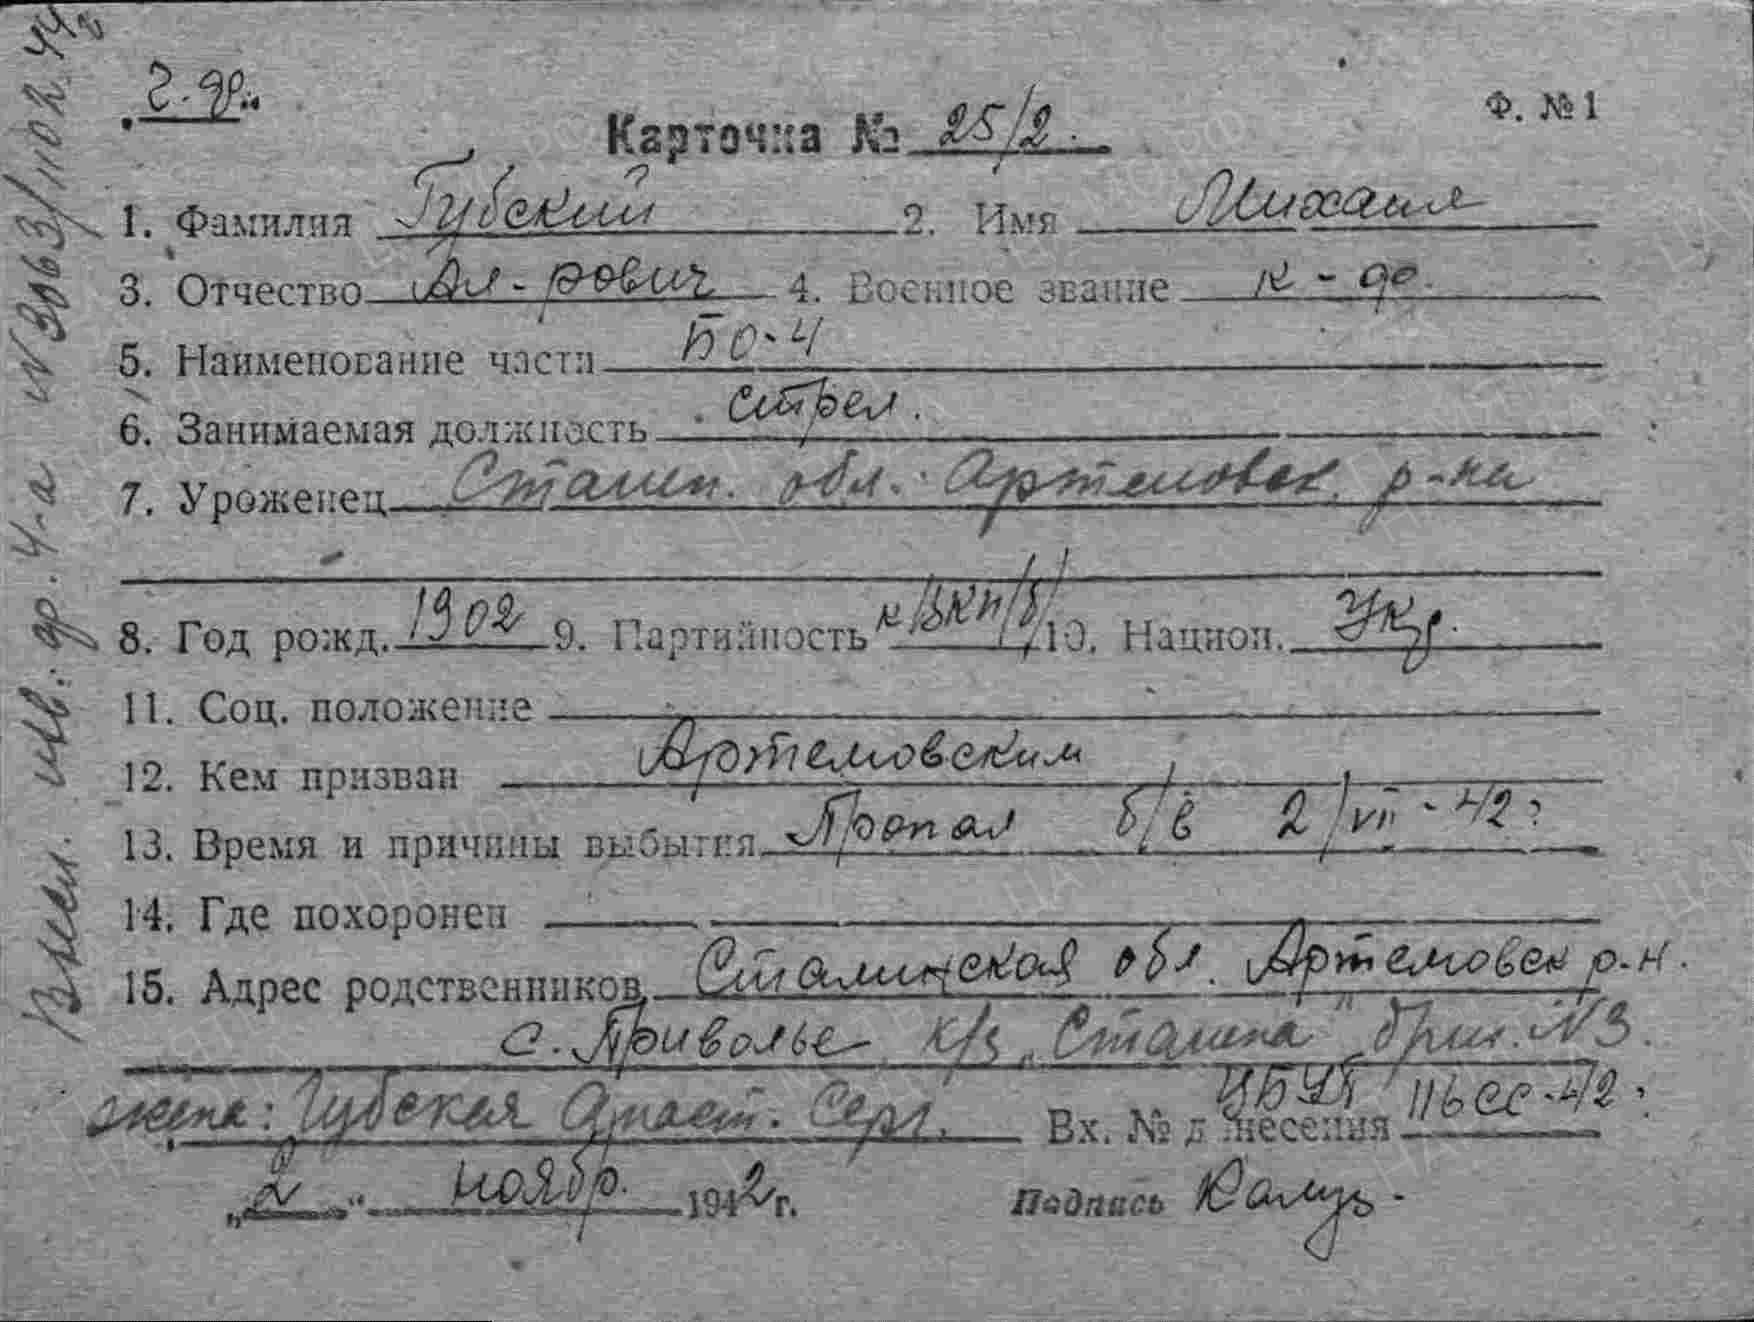 Ф. №1
Карточка № 25/2.
1. Фамилия Губский 2. Имя Михаил
3. Отчество Ал-рович 4. Военное звание к-ф
5. Наименование части БО-4
6. Занимаемая должность стрел.
7. Уроженец Сталин. обл. Артемовск. р-на
8. Год рожд. 1902 9. Партийность к/ВКП/б/ 10. Национ. Укр.
11. Соц. положение
12. Кем призван Артемовским
13. Время и причины выбытия Пропал б/в 2/VII-42г
14. Где похоронен
15. Адрес родственников Сталинская обл. Артемовск р-н.
с. Приволье к/з "Сталина" бриг. №3.
жена: Губская Анаст. Серг. Вх. № донесения 116сс-42г
"2" ноябр. 1942г. Подпись